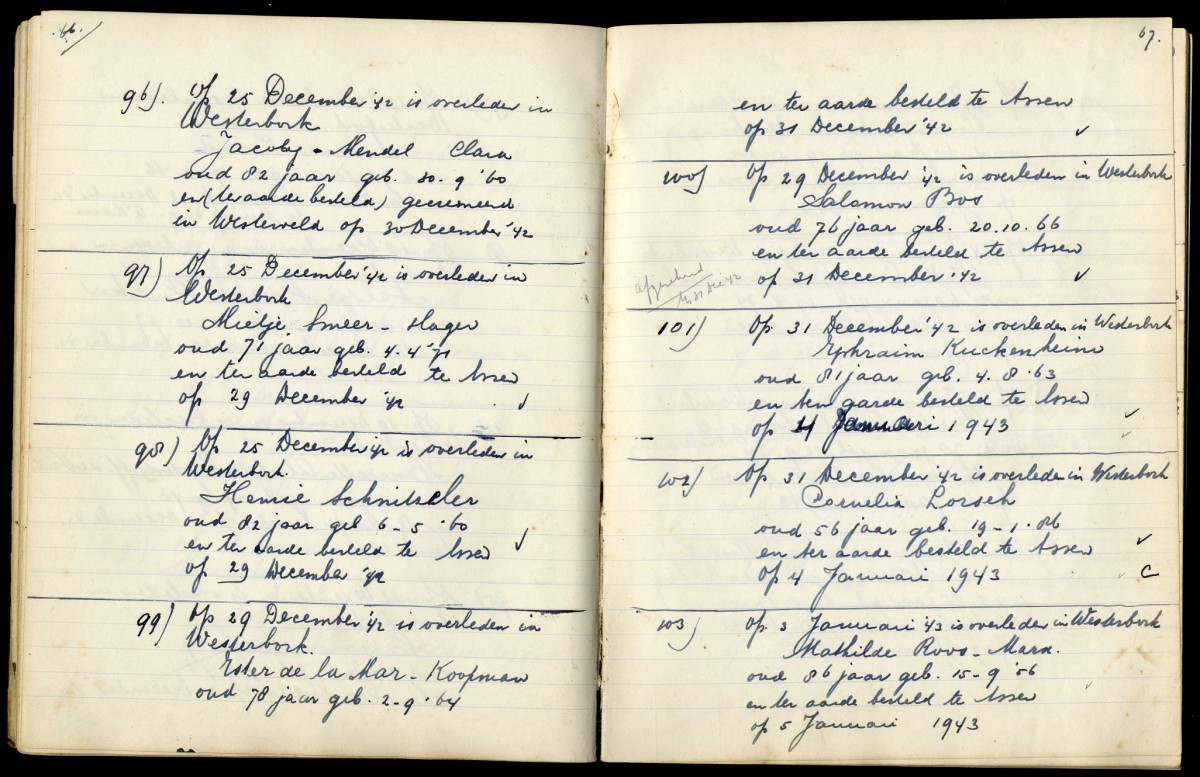 66.
96). Op 25 December '42 is overleden in
Westerbork
Jacoby - Mendel Clara
oud 82 jaar geb. 30. 9 '60
en (ter aarde besteld) gecremeerd
in Westerveld op 30 December '42
97) Op 25 December '42 is overleden in
Westerbork
Mietje Smeer - Hager
oud 71 jaar geb. 4. 4 '71
en ter aarde besteld te Assen
op 29 December '42
98) Op 25 December '42 is overleden in
Westerbork.
Henrie Schnitzeler
oud 82 jaar geb 6 - 5 '60
en ter aarde besteld te Assen
op 29 December '42
99) Op 29 December '42 is overleden in
Westerbork.
Ester de la Mar - Koopman
oud 78 jaar geb. 2 - 9 '64
67.
en ter aarde besteld te Assen
op 31 December '42
100) Op 29 December '42 is overleden in Westerbork
Salomon Bos
oud 76 jaar geb. 20.10.66
en ter aarde besteld te Assen
op 31 December '42
101) Op 31 December '42 is overleden in Westerbork
Ephraim Kuckenheim
oud 81 jaar geb. 4. 8. 63
en ter aarde besteld te Assen
op 4 Januari 1943
102) Op 31 December '42 is overleden in Westerbork
Cornelia Lorsch
oud 56 jaar geb. 19 - 1. 86
en ter aarde besteld te Assen
op 4 Januari 1943 C
103) Op 3 Januari '43 is overleden in Westerbork
Mathilde Roos - Marx.
oud 86 jaar geb. 15 - 9 '56
en ter aarde besteld te Assen
op 5 Januari 1943